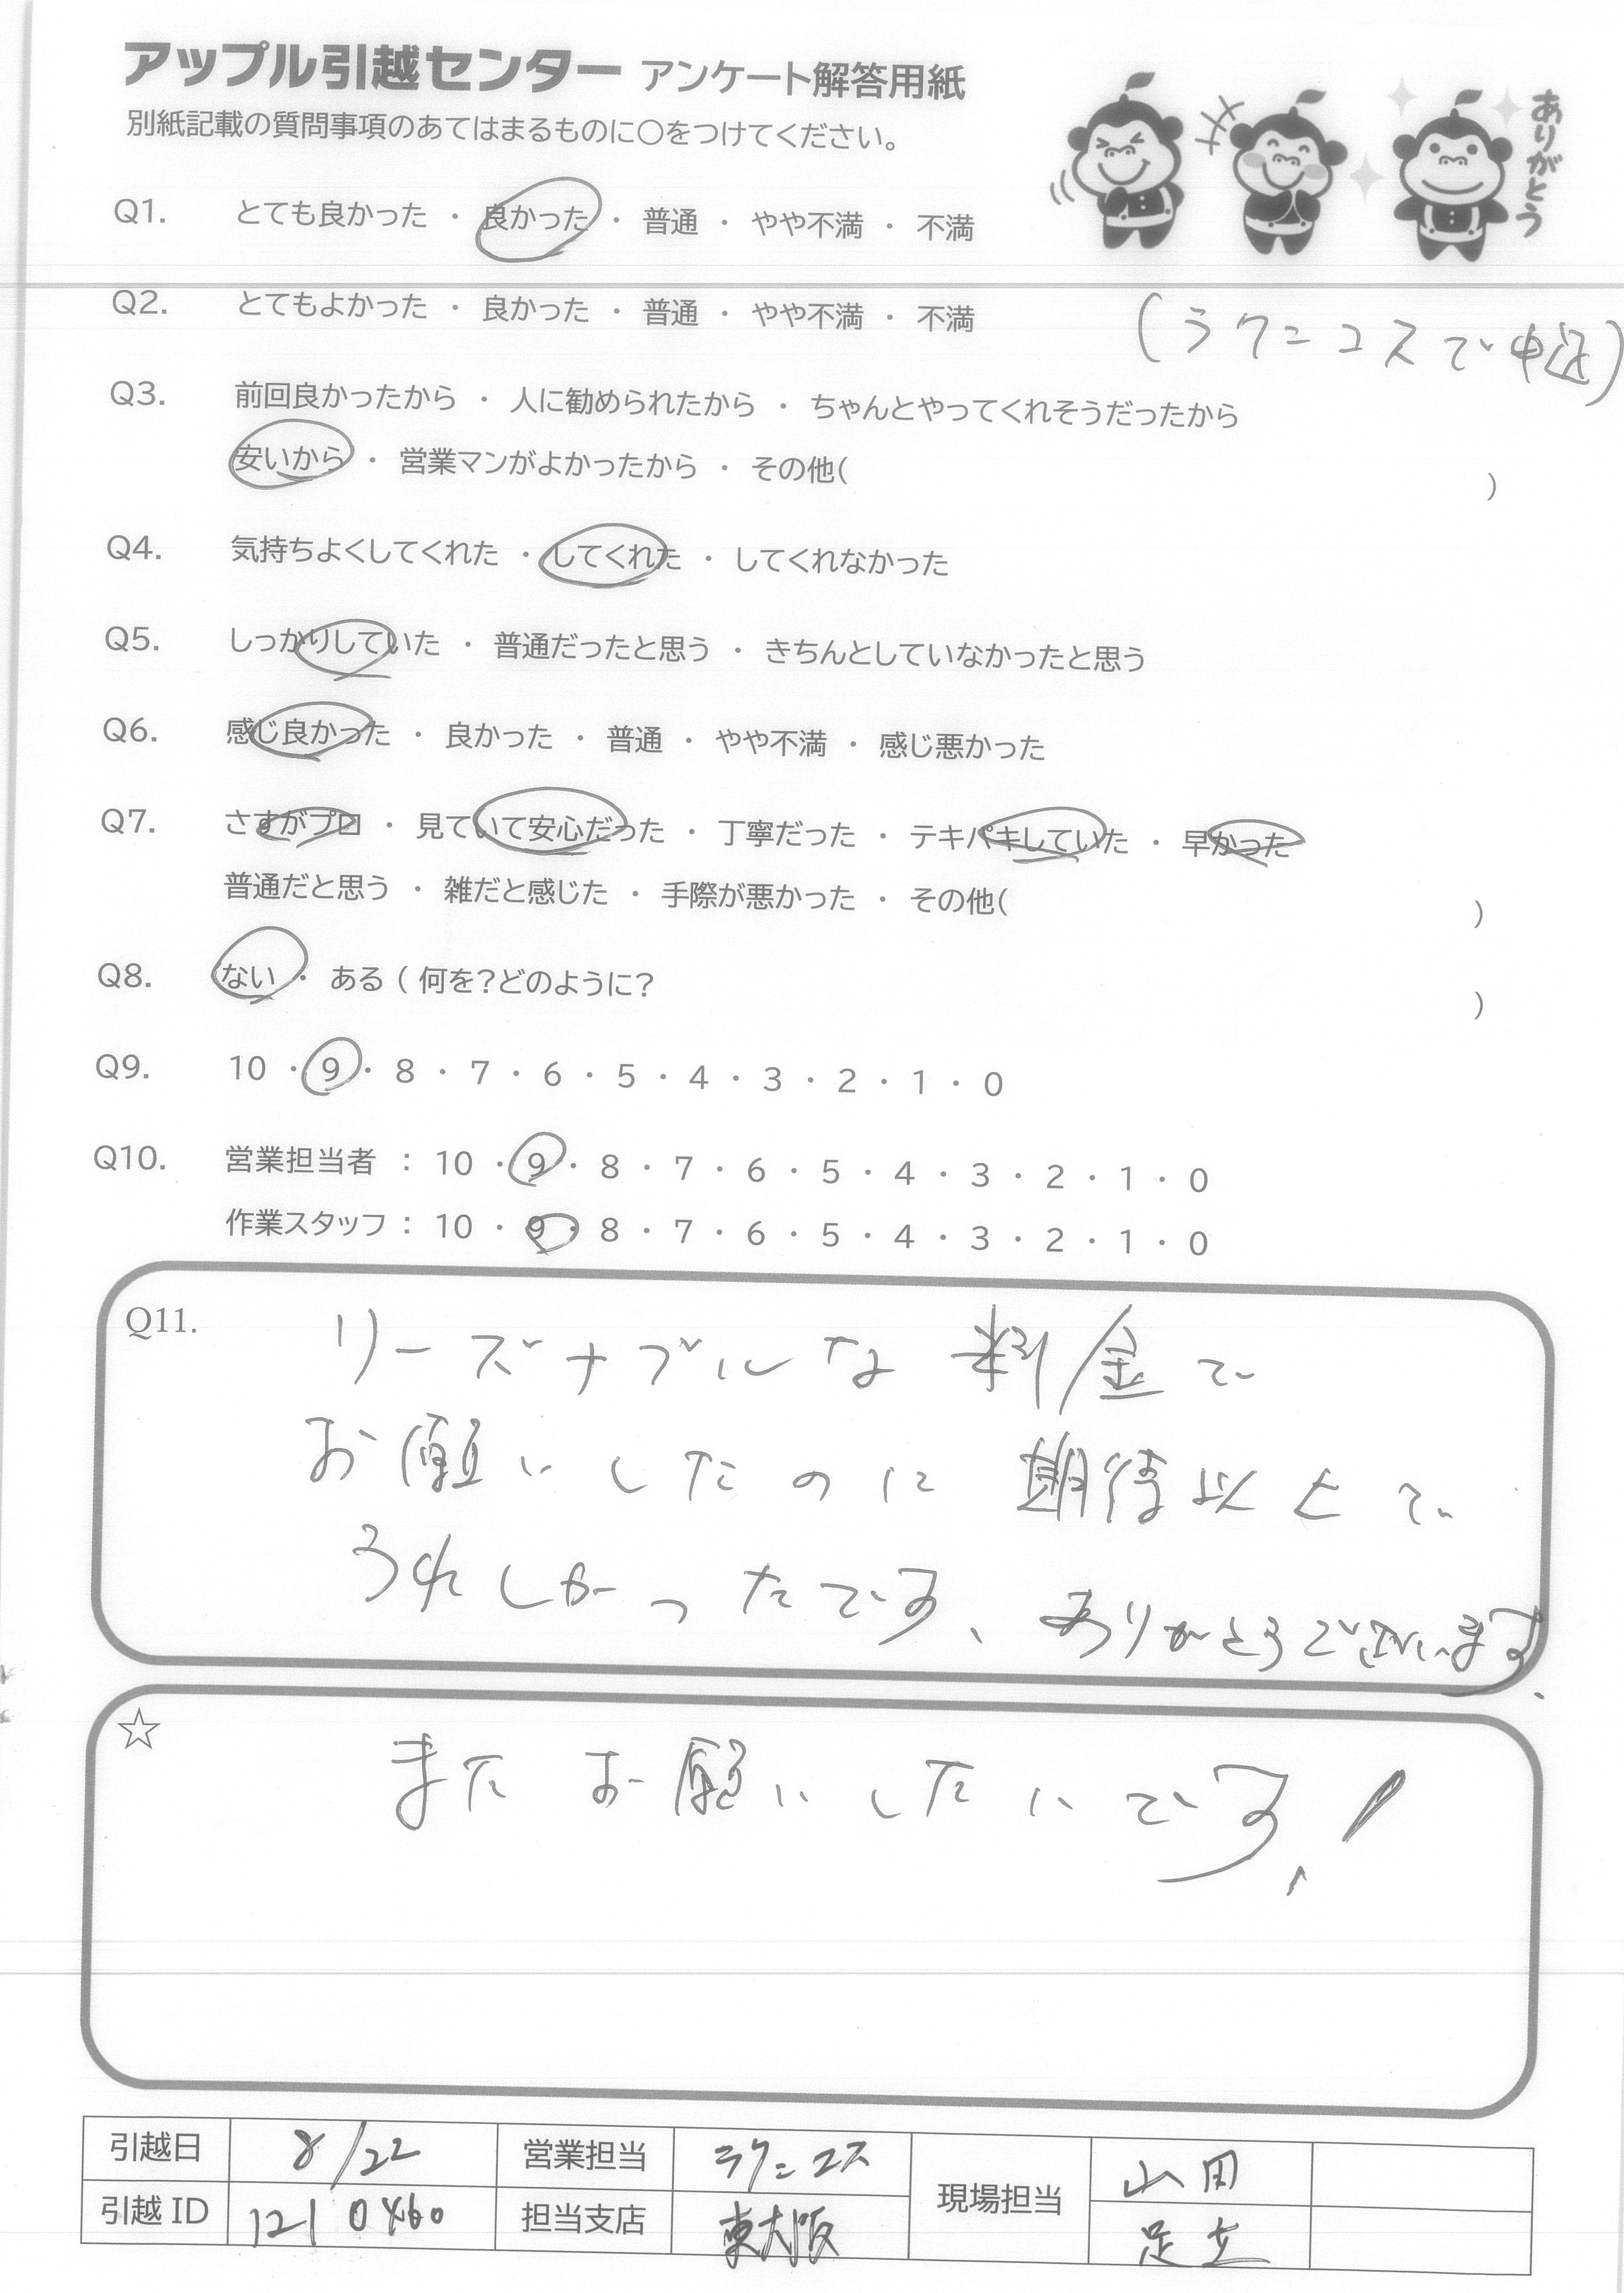 アップル引越センター アンケート解答用紙
別紙記載の質問事項のあてはまるものに○をつけてください。
ありがとう
Q1. とても良かった ・ 良かった ・ 普通 ・ やや不満 ・ 不満
Q2. とてもよかった ・ 良かった ・ 普通 ・ やや不満 ・ 不満
(ラクニコスで申込)
Q3. 前回良かったから ・ 人に勧められたから ・ ちゃんとやってくれそうだったから
安いから ・ 営業マンがよかったから ・ その他( )
Q4. 気持ちよくしてくれた ・ してくれた ・ してくれなかった
Q5. しっかりしていた ・ 普通だったと思う ・ きちんとしていなかったと思う
Q6. 感じ良かった ・ 良かった ・ 普通 ・ やや不満 ・ 感じ悪かった
Q7. さすがプロ ・ 見ていて安心だった ・ 丁寧だった ・ テキパキしていた ・ 早かった
普通だと思う ・ 雑だと感じた ・ 手際が悪かった ・ その他( )
Q8. ない ・ ある ( 何を?どのように? )
Q9. 10 ・ 9 ・ 8 ・ 7 ・ 6 ・ 5 ・ 4 ・ 3 ・ 2 ・ 1 ・ 0
Q10. 営業担当者 : 10 ・ 9 ・ 8 ・ 7 ・ 6 ・ 5 ・ 4 ・ 3 ・ 2 ・ 1 ・ 0
作業スタッフ : 10 ・ 9 ・ 8 ・ 7 ・ 6 ・ 5 ・ 4 ・ 3 ・ 2 ・ 1 ・ 0
Q11. リーズナブルな料金で
お願いしたのに期待以上で
うれしかったです、ありがとうございます.
☆ またお願いしたいです!
引越日 8/22 営業担当 ラクニコス 現場担当 山田
引越ID 1210460 担当支店 東大阪 足立